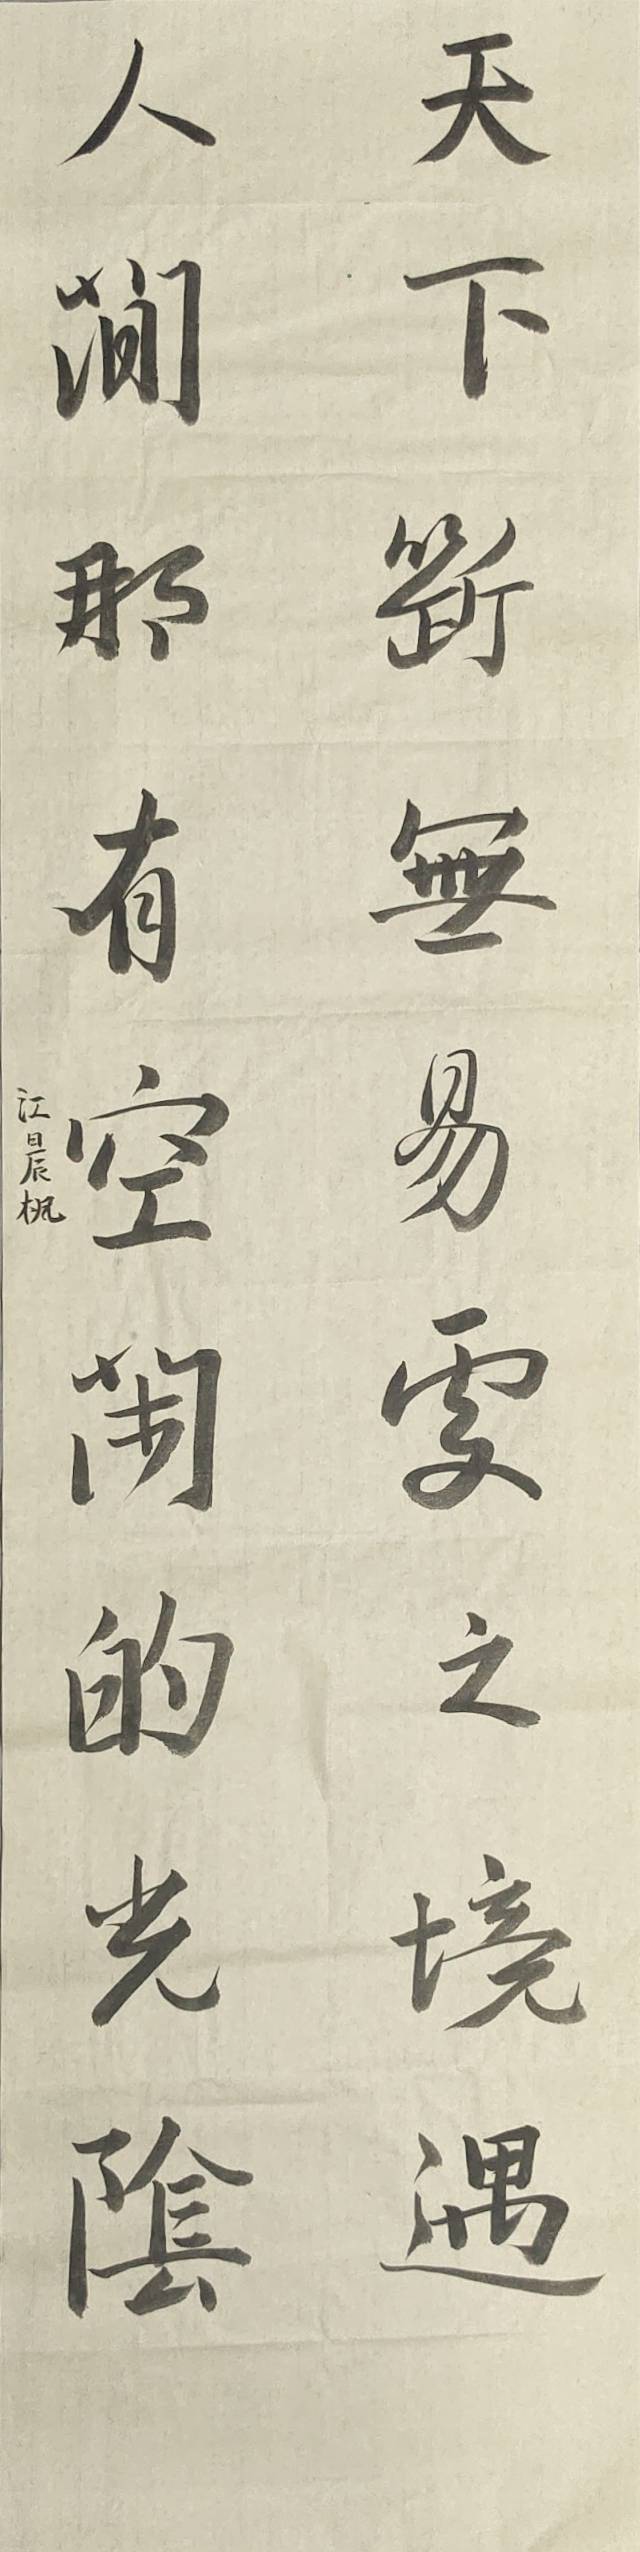 天下斷無易處之境遇
人間那有空閑的光陰
江晨帆